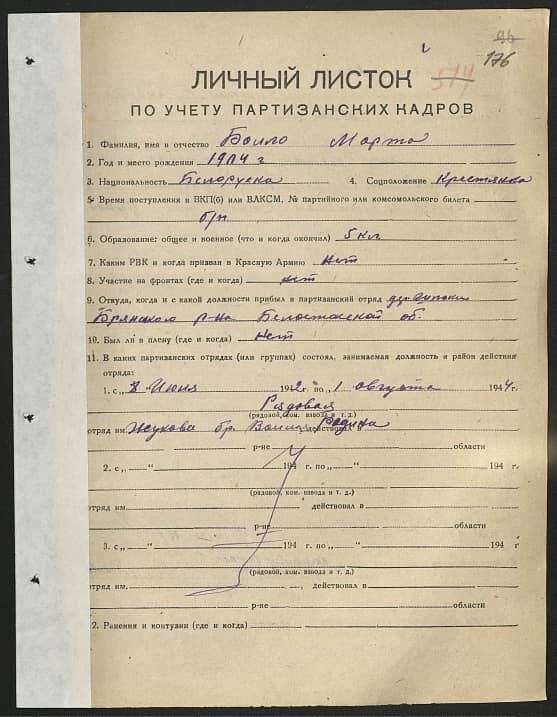 96
176
574
ЛИЧНЫЙ ЛИСТОК
ПО УЧЕТУ ПАРТИЗАНСКИХ КАДРОВ
1. Фамилия, имя и отчество Боило Марта
2. Год и место рождения 1904 г
3. Национальность Белоруска 4. Соцположение Крестянка
5. Время поступления в ВКП(б) или ВЛКСМ, № партийного или комсомольского билета
б/п
6. Образование: общее и военное (что и когда окончил) 5 кл
7. Каким РВК и когда призван в Красную Армию нет
8. Участие на фронтах (где и когда) нет
9. Откуда, когда и с какой должности прибыл в партизанский отряд дер.
Брянского р-на Белостокской об.
10. Был ли в плену (где и когда) нет
11. В каких партизанских отрядах (или группах) состоял, занимаемая должность и район действия
отряда:
1. с „ Июня 1942 г. по „1 августа 1944 г.
Рядовая
(рядовой, ком. взвода и т. д.)
отряд им. Жукова бр. действовал в Родина
р-не области
2. с „ “ 194 г. по „ “ 194 г.
(рядовой, ком. взвода и т. д.)
отряд им. действовал в
р-не области
3. с „ “ 194 г. по „ “ 194 г
(рядовой, ком. взвода и т. д.)
отряд им. действовал в
р-не области
2. Ранения и контузии (где и когда)